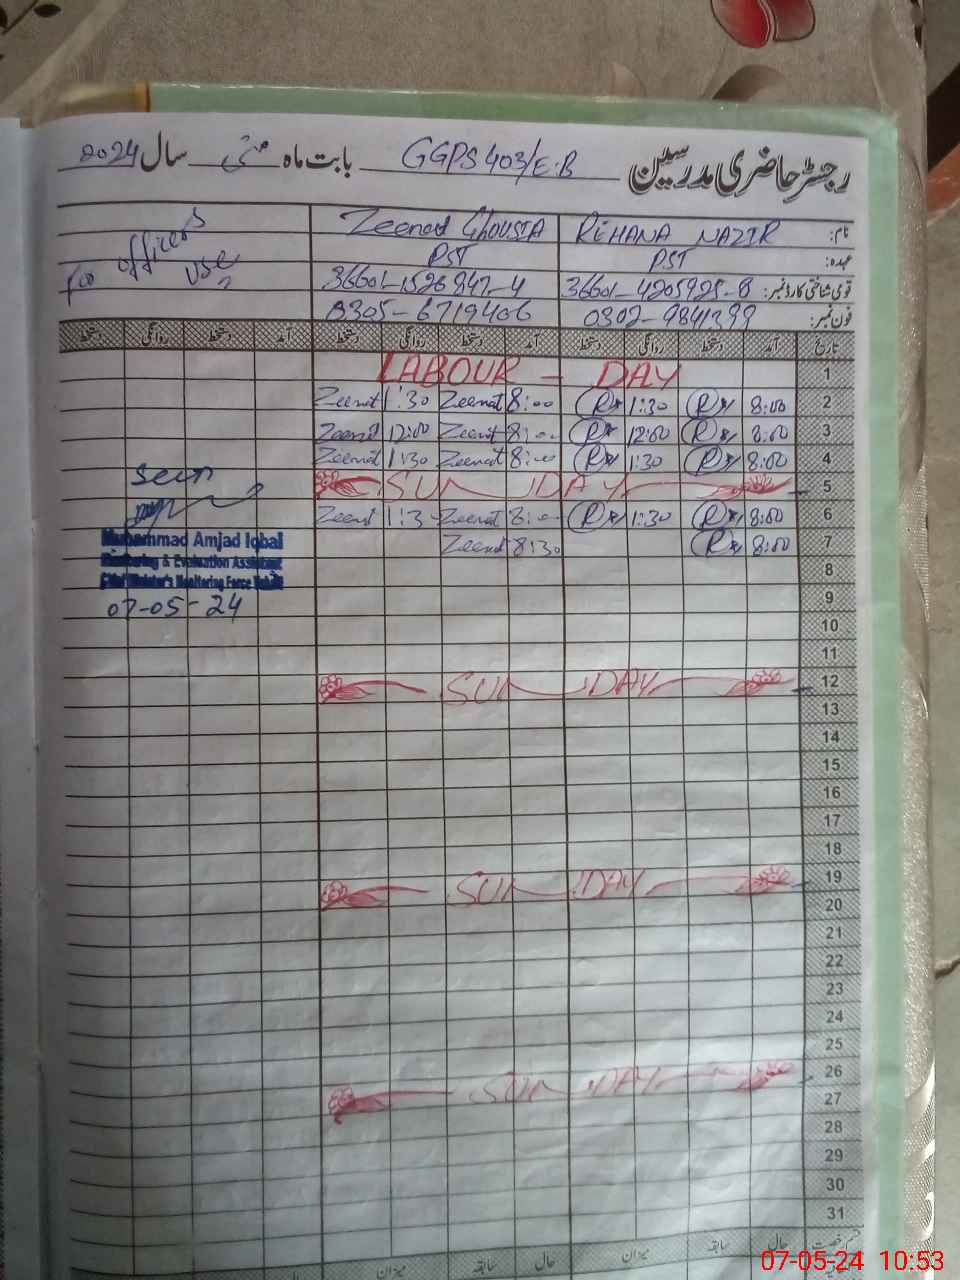 رجسٹر حاضری مدرسین GGPS 403/E.B بابت ماہ مئی سال 2024
نام: RiHANA NAZIR Zeenat Ghousia for officers use
عہدہ: PST PST
قومی شناختی کارڈ نمبر: 36601-4205925-8 36601-1526947-4
فون نمبر: 0302-9841399 0305-6719406
تاریخ آمد دستخط روانگی دستخط آمد دستخط روانگی دستخط آمد دستخط روانگی دستخط
1 LABOUR - DAY
2 8:00 1:30 Zeenat 8:00 Zeenat 1:30
3 8:00 12:00 Zeenat 8:00 Zeenat 12:00
4 8:00 1:30 Zeenat 8:00 Zeenat 1:30
5 SUNDAY
6 8:00 1:30 Zeenat 8:00 Zeenat 1:3
7 8:00 Zeenat 8:30
8
9
10
11
12 SUNDAY
13
14
15
16
17
18
19 SUNDAY
20
21
22
23
24
25
26 SUNDAY
27
28
29
30
31
قسم رخصت حال سابقہ میزان حال سابقہ میزان
Seen
Muhammad Amjad Iqbal
Monitoring & Evaluation Assistant
Chief Minister's Monitoring Force
07-05-24
07-05-24 10:53